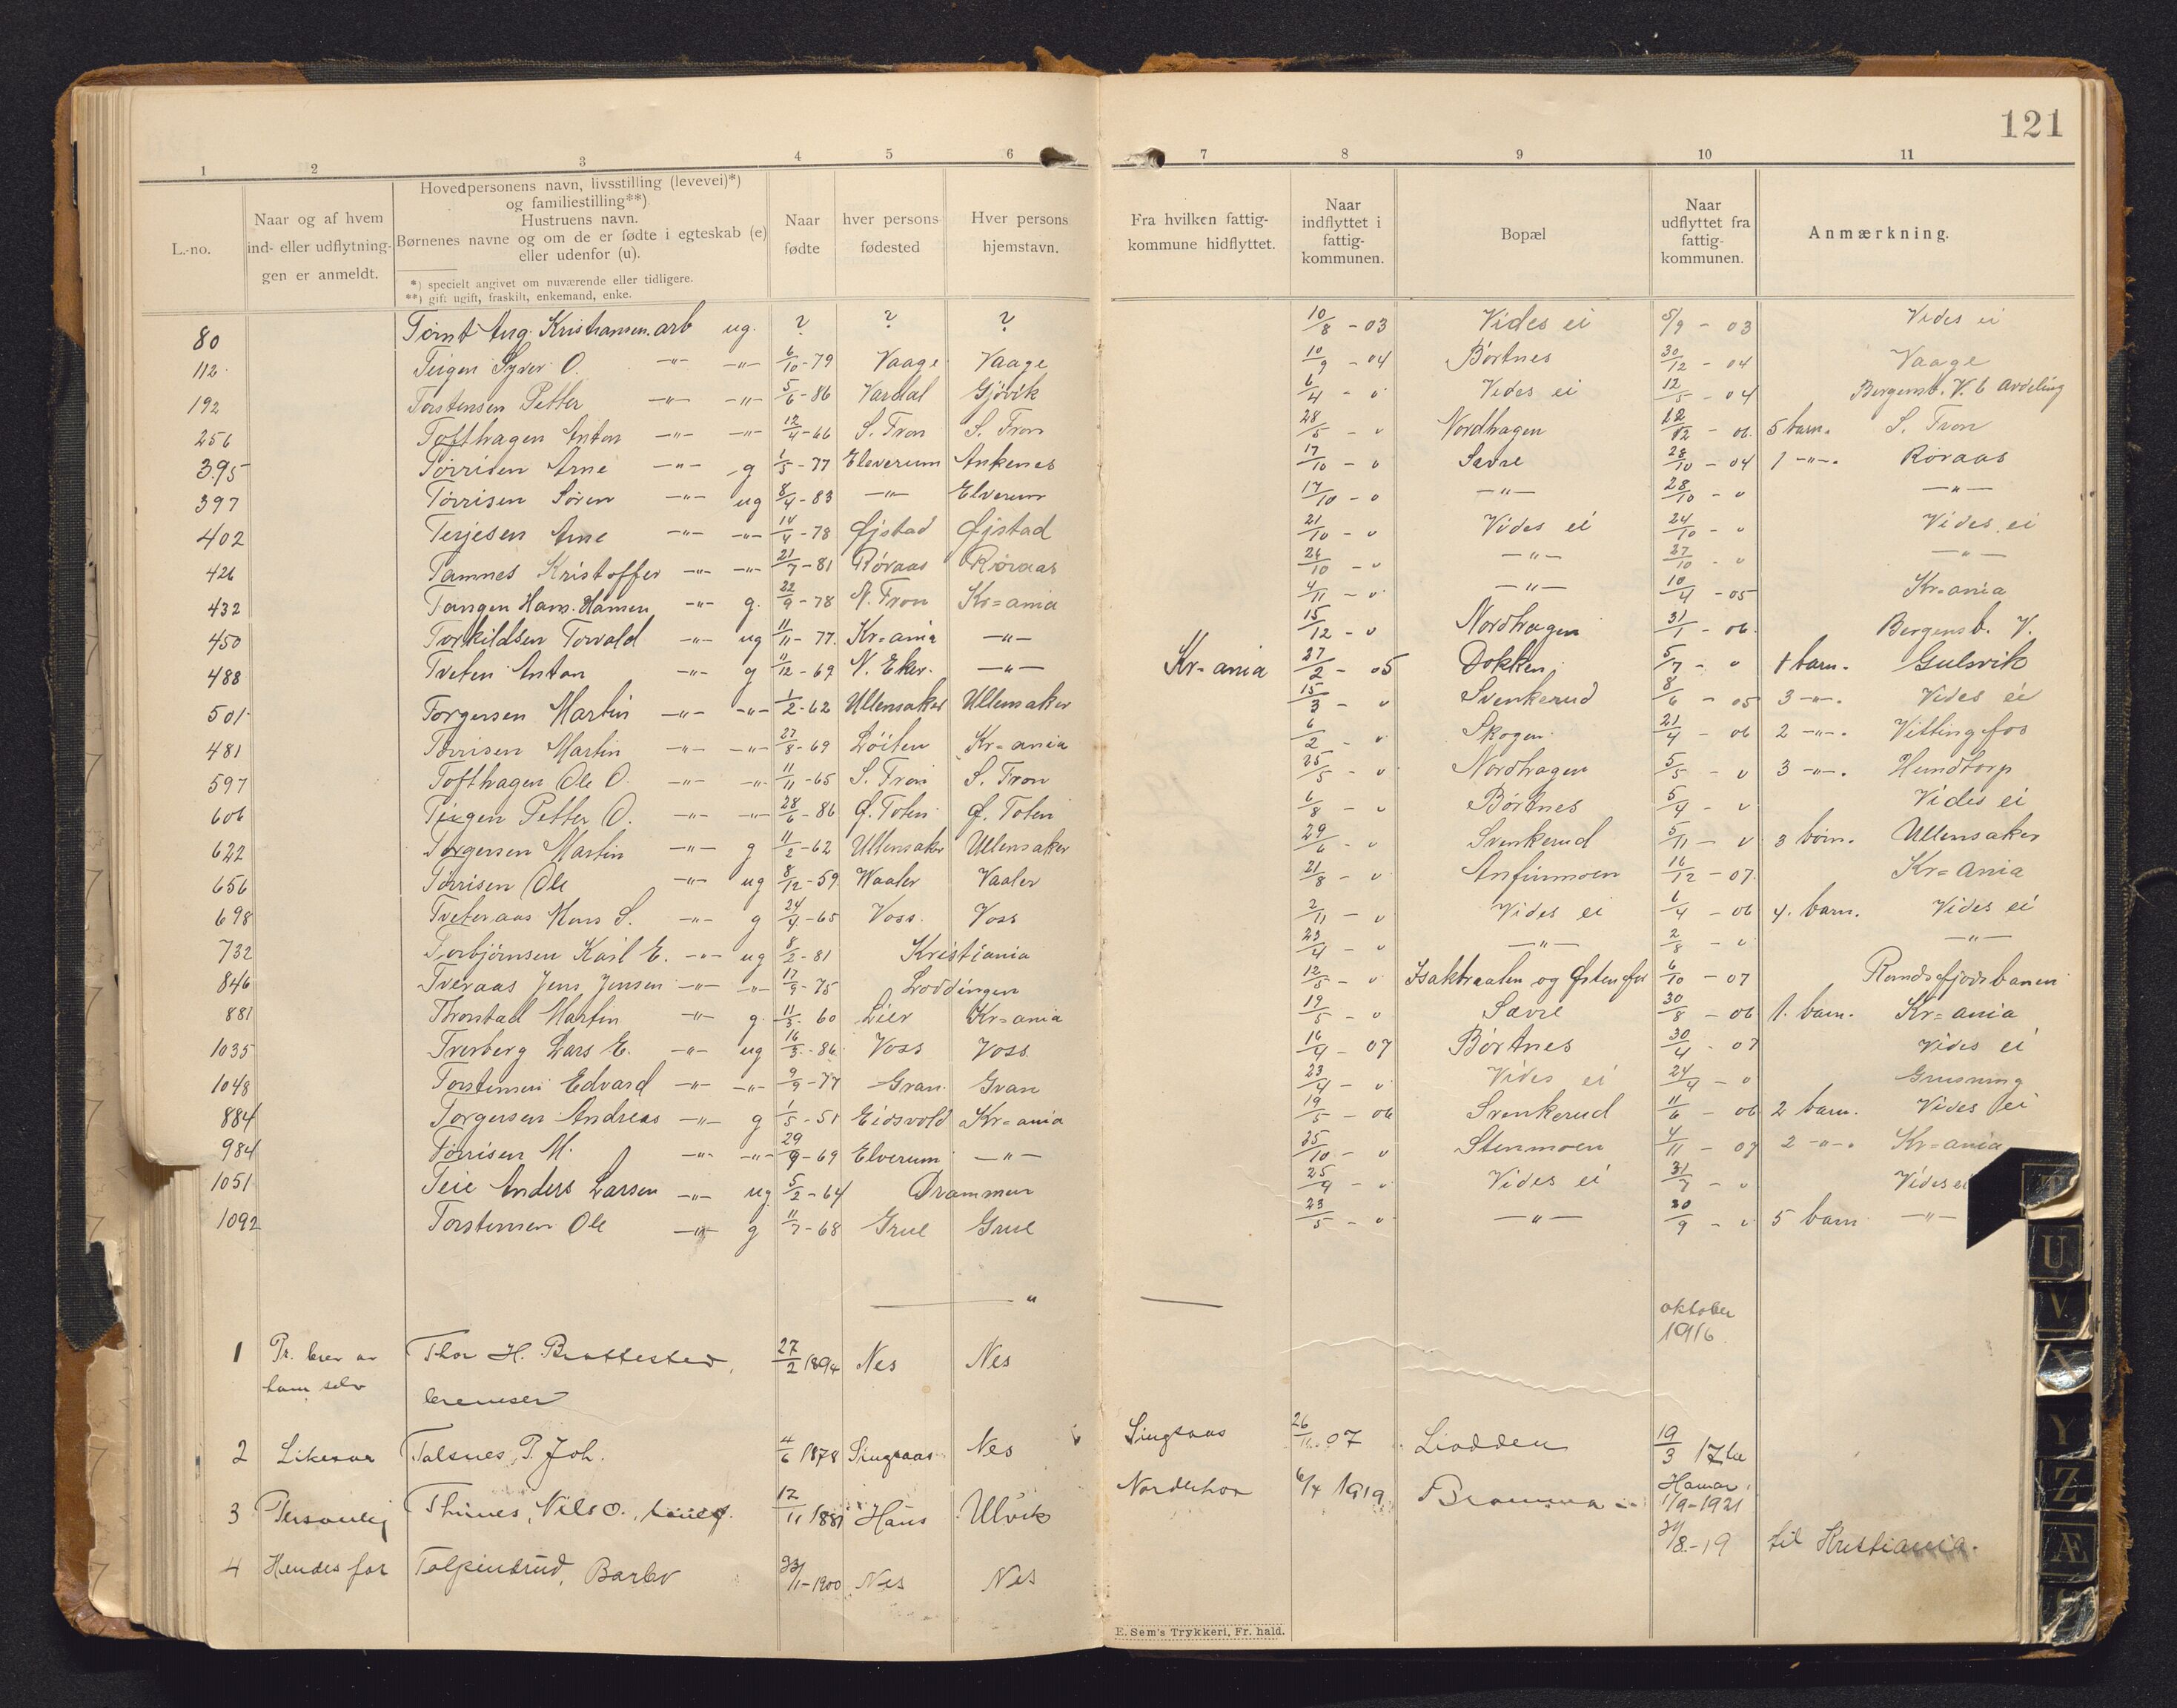 121
1 2 3 4 5 6 7 8 9 10 11
L.-no.
Naar og af hvem ind- eller udflytningen er anmeldt.
Hovedpersonens navn, livsstilling (levevei)*)
og familiestilling**)
Hustruens navn.
Børnenes navne og om de er fødte i egteskab (e)
eller udenfor (u).
*) specielt angivet om nuværende eller tidligere.
**) gift ugift, fraskilt, enkemand, enke.
Naar fødte
hver persons fødested
Hver persons hjemstavn.
Fra hvilken fattigkommune hidflyttet.
Naar indflyttet i fattigkommunen.
Bopæl
Naar udflyttet fra fattigkommunen.
Anmærkning.
80 Aug. Kristiansen. arb ug. ? ? ? 10/8 - 03 Vides ei 5/9 - 03 Vides ei
112 Teigen Syver O. -"- -"- 6/10 - 79 Vaage Vaage 10/9 - 04 Børtnes 30/12 - 04 Vaage
192 Torstensen Petter -"- -"- 5/6 - 86 Vardal Gjövik 6/4 - " Vides ei 12/5 - 04 Bergensb. V. 6 Avdeling
256 Tofthagen Anton -"- -"- 12/4 - 66 S. Fron S. Fron 28/5 - " Nordhagen 12/12 - 06 5 barn. S. Fron
395 Törrisen Arne -"- g 1/5 - 77 Elverum Ankenes 17/10 - " Sevre 28/10 - 04 1 -"- Röraas
397 Törrisen Sören -"- ug 8/4 - 83 -"- Elverum 17/10 - " -"- 28/10 - " -"-
402 Terjesen Arne -"- -"- 14/4 - 78 Øjstad Øjstad 21/10 - " Vides ei 24/10 - " Vides ei
426 Tamnes Kristoffer -"- -"- 21/7 - 81 Röraas Röraas 26/10 - " -"- 27/10 - " -"-
432 Tangen Hans Hansen -"- g. 22/9 - 78 N. Fron Kr=ania 4/11 - " -"- 10/4 - 05 Kr=ania
450 Torkildsen Torvald -"- ug 11/11 - 77. Kr=ania -"- 15/12 - " Nordhagen 31/1 - 06. Bergensb. V.
488 Tveten Anton -"- g 11/12 - 69 N. Eker. -"- Kr=ania 27/2 - 05 Dokken 5/7 - " 1 barn. Gulsvik
501 Torgersen Martin -"- -"- 1/2 - 62 Ullensaker Ullensaker 15/3 - " Svenkerud 8/6 - 05 3 -"- Vides ei
481 Törrisen Martin -"- -"- 27/8 - 69 Löiten Kr=ania 6/2 - " Skogen 21/4 - 06 2 -"- Vittingfos
597 Tofthagen Ole O. -"- -"- 11/11 - 65 S. Fron S. Fron 25/5 - " Nordhagen 5/5 - " 3 -"- Hundtorp
606 Teigen Petter O. -"- -"- 28/6 - 86 Ø. Toten Ø. Toten 6/8 - " Börtnes 5/4 - " Vides ei
622 Torgersen Martin -"- g 11/2 - 62 Ullensaker Ullensaker 29/6 - " Svenkerud 5/11 - " 3 börn. Ullensaker
656 Törrisen Ole -"- ug 8/12 - 59 Waaler Vaaler 21/8 - " Anfinmoen 16/12 - 07. Kr=ania
698 Tveteraas Mons S. -"- g 24/4 - 65 Voss Voss 2/11 - " Vides ei 6/4 - 06 4. barn. Vides ei
732 Torbjørnsen Karl E. -"- ug 8/2 - 81 Kristiania 23/4 - " -"- 2/8 - " -"-
846 Tveraas Jens Jensen -"- -"- 17/9 - 75 Loddingen 12/5 - " og 6/10 - 07 Randsfjordsbanen
881 Thronstad Martin -"- g. 11/3 - 60 Lier Kr=ania 19/5 - " Sævre 30/8 - 06 1. barn. Kr=ania
1035 Tverberg Lars E. -"- ug 16/3 - 86. Voss Voss. 16/4 - 07 Börtnes 30/4 - 07 Vides ei
1048 Torstensen Edvard -"- -"- 9/9 - 77 Gran Gran 23/4 - " Vides ei 24/4 - "
884 Torgersen Andreas -"- g 1/5 - 51 Eidsvold Kr=ania 19/5 - 06 Svenkerud 11/6 - 06 2 barn. Vides ei
984 Törrisen M. -"- -"- 29/9 - 69 Elverum -"- 25/10 - " Stenmoen 4/11 - 07 2 -"- Kr=ania
1051 Teie Anders Larsen -"- ug 5/2 - 64 Drammen 25/4 - " Vides ei 31/7 - " Vides ei
1092 Torstensen Ole -"- g 11/7 - 68 Grue Grue 23/5 - " -"- 30/9 - " 5 barn -"-
— " —
1 Pr. brev av Thor H. Brattested, 27/2 1894 Nes Nes oktober 1916.
ham selv bremser
2 Likesaa Talsnes, P. Joh. 4/6 1878 Singsaas Nes Singsaas 26/11 07 Liodden 19/3 17 til Hamar
3 Personlig Thunes, Nils O., 12/11 1881 Haus Ulvik Norderhov 6/4 1919 Bromma 1/9 - 1921
4 Hendes far Tolpinrud, Barbr 23/11 - 1900 Nes Nes 21/8 - 19 til Kristiania.
E. Sem's Trykkeri, Fr. hald.
U
V
X
Y
Z
Æ